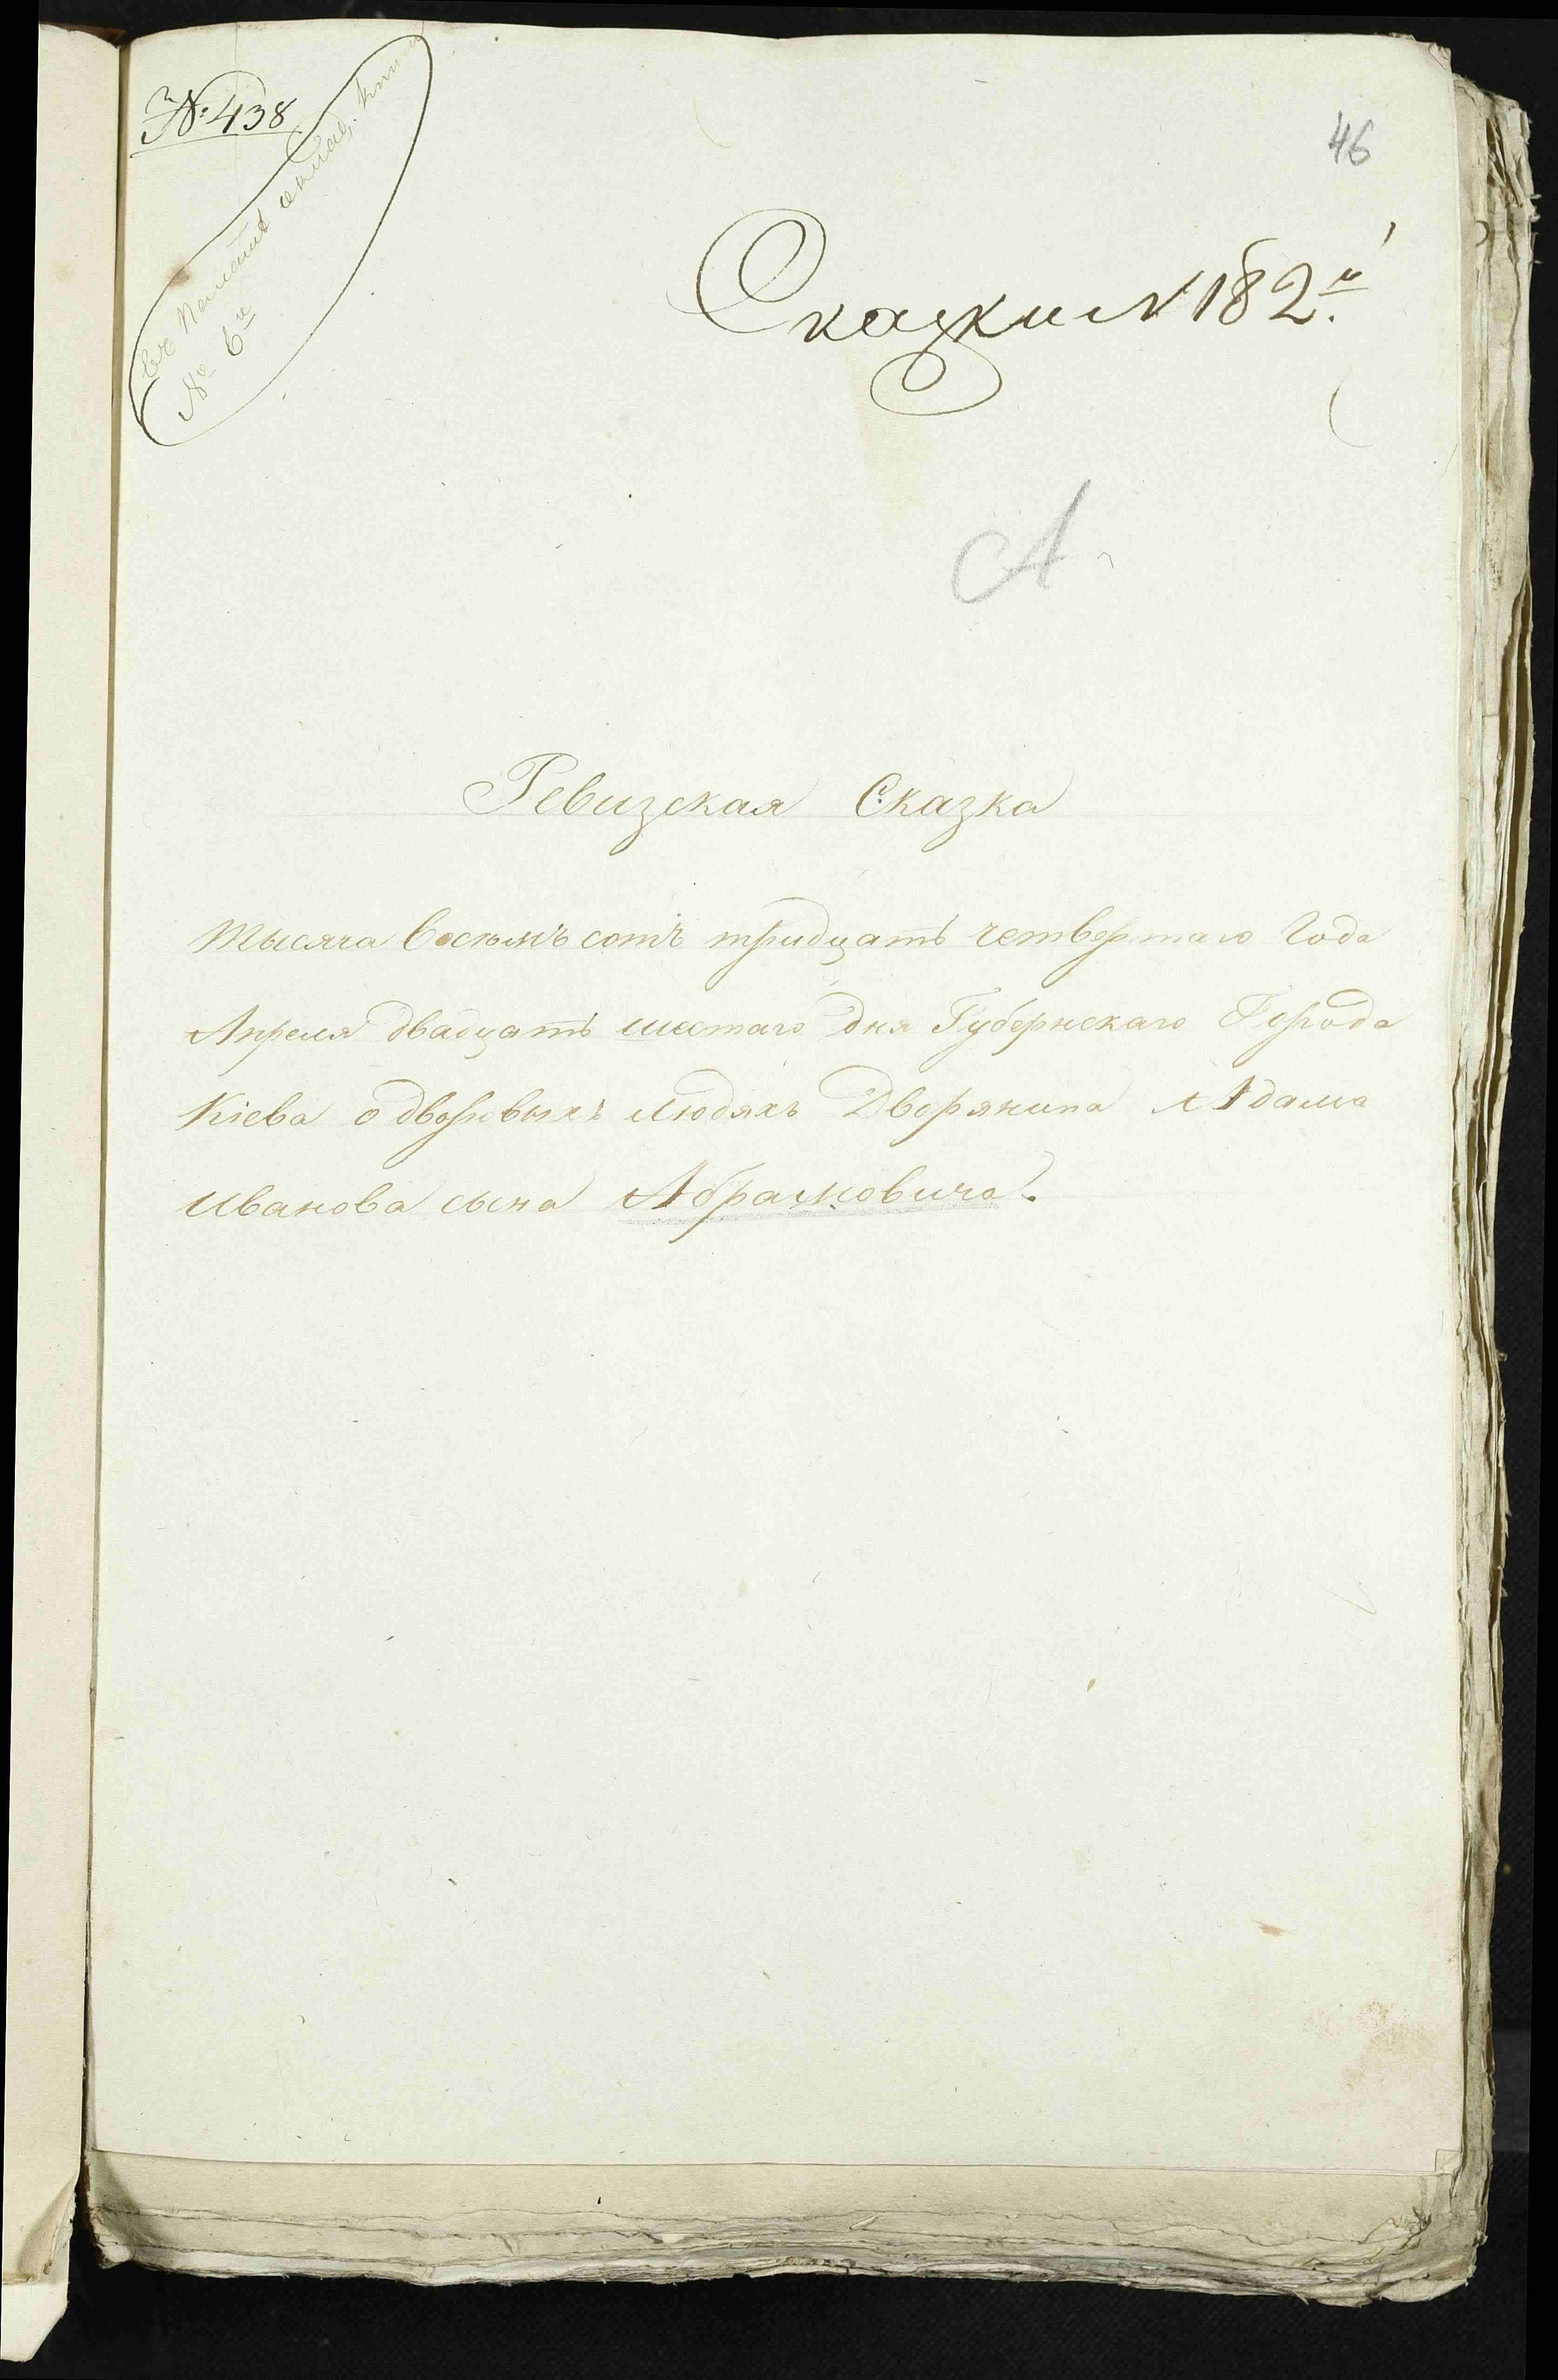 № 438
46
№ 6й
Сказки № 182й
А.
Ревизская Сказка
Тысяча восемъ сотъ тридцать четвертаго Года
Апреля двадцать шестаго дня Губернскаго Города
Кіева о дворовыхъ людяхъ Дворянина Адама
Иванова сына Абрамовича.